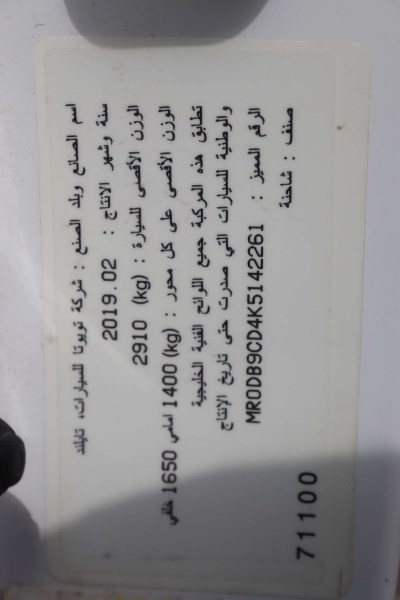 اسم الصانع وبلد الصنع : شركة تويوتا للسيارات، تايلند
سنة وشهر الانتاج : 2019.02
الوزن الأقصى للسيارة : (kg) 2910
الوزن الأقصى على كل محور : (kg) 1400 امامي 1650 خلفي
تطابق هذه المركبة جميع اللوائح الفنية الخليجية
والوطنية للسيارات التي صدرت حتى تاريخ الإنتاج
الرقم المميز : MR0DB9CD4K5142261
صنف : شاحنة
71100